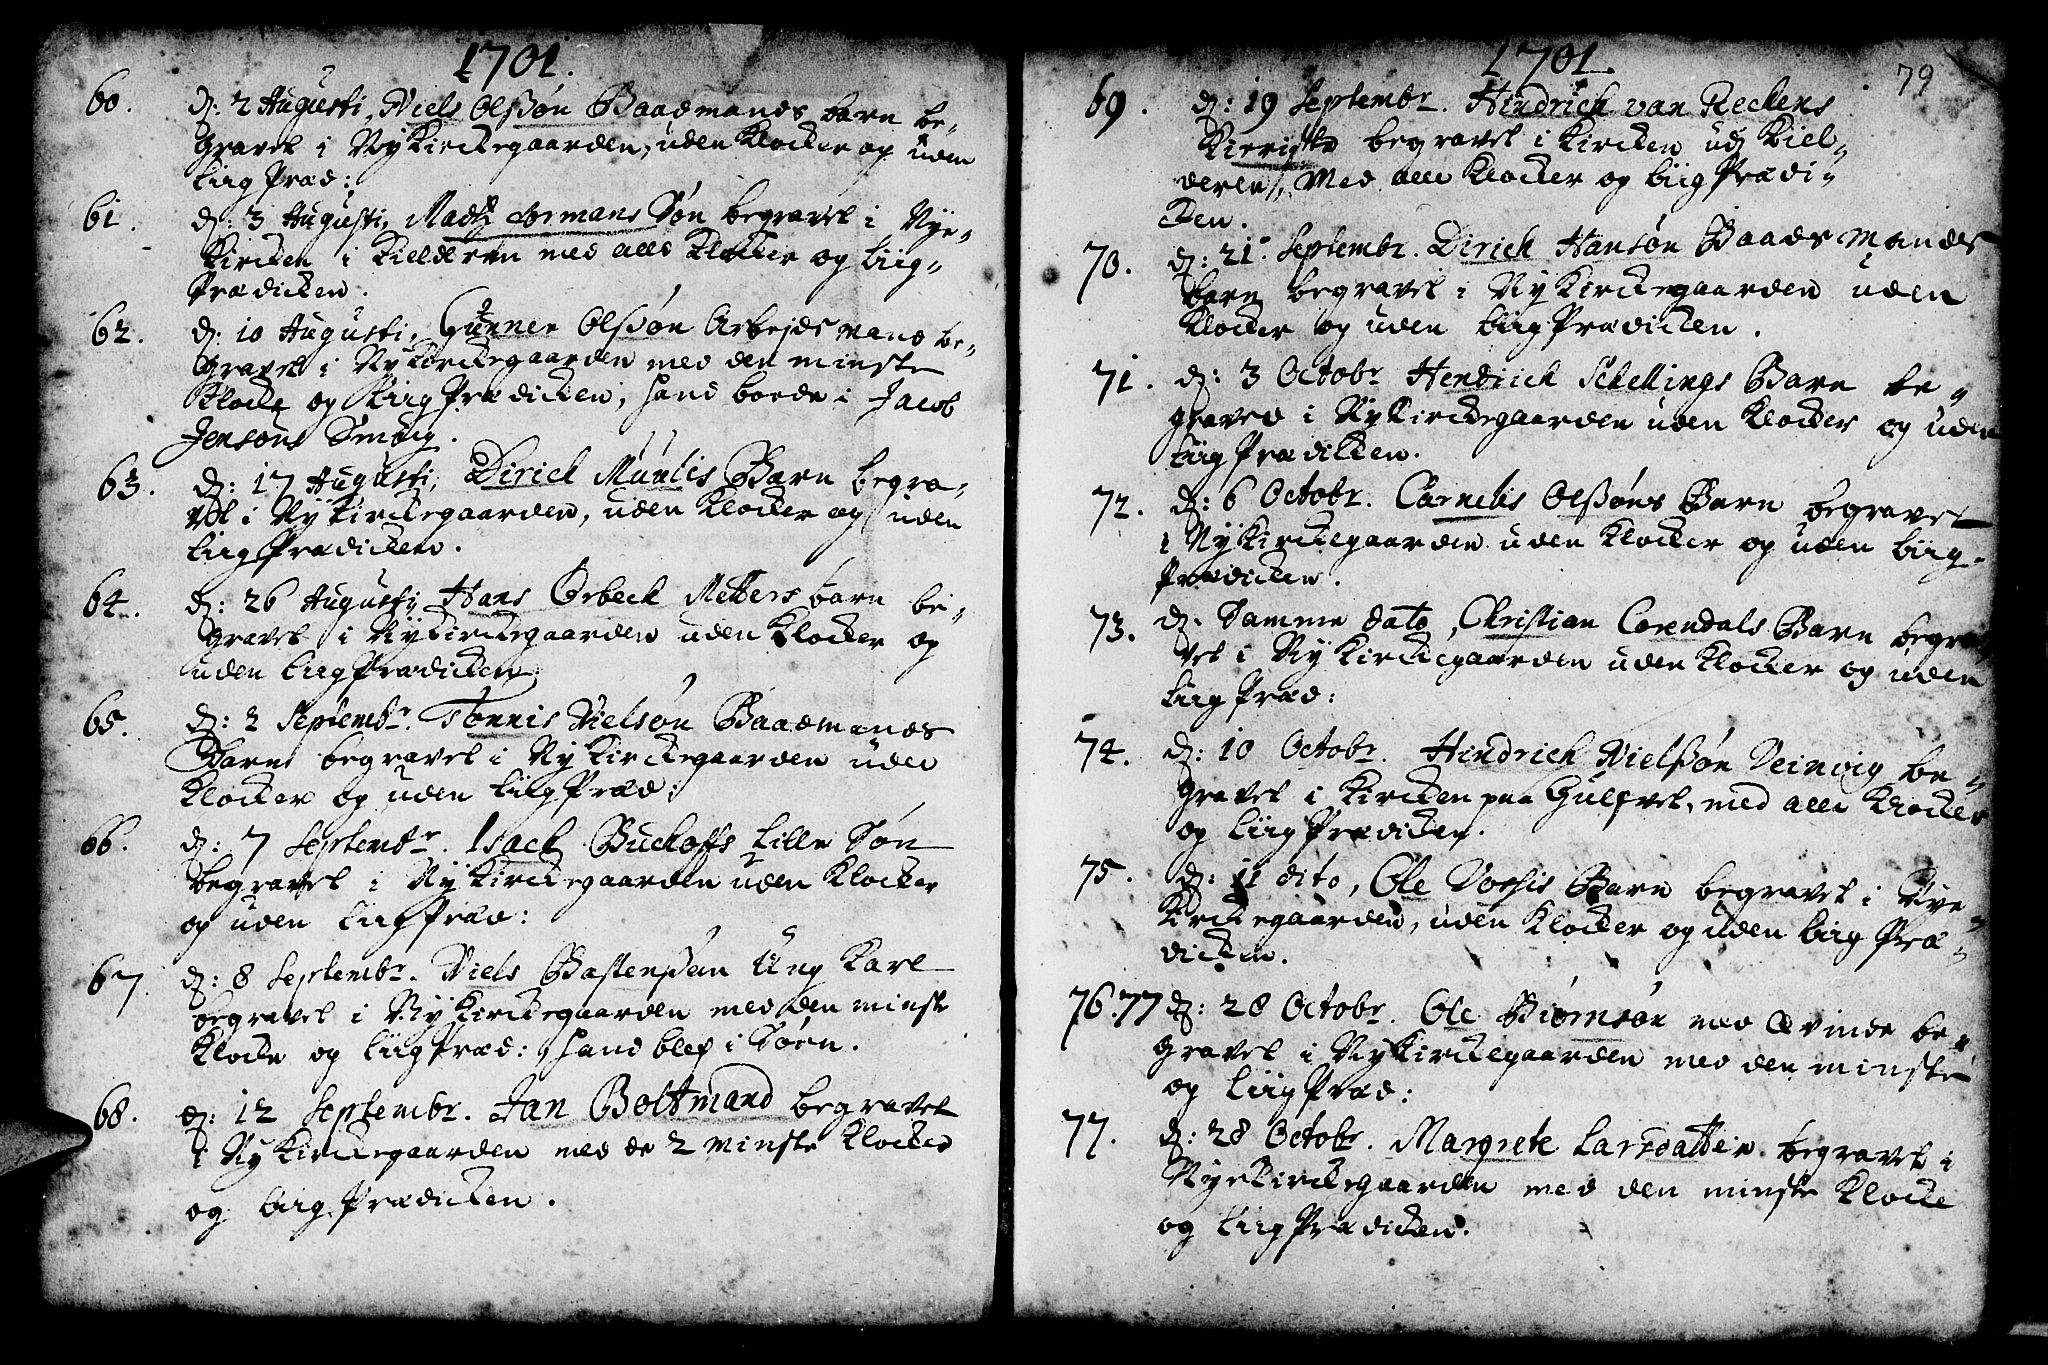 1701.
60. d: 2 Augusti, Niels Olßøn Baadmands barn be-
gravet i Nykirckegaarden, uden Klocker og uden
Liig Præd:
61. d: 3 Augusti, Madtz Sørmans Søn begravet i Nye-
Kircken i Kielderen med alle Klocker og Liig-
Prædicken.
62. d: 10 Augusti, Gunner Olßøn Arbejds mand be-
gravet i Nykirckegaarden med den minste
Klocke og Liig Prædicken, hand boede i Jacob
Jensøns Smøig.
63. d: 17 Augusti, Dirich Muhlis Barn begra-
vet i Nykirckegaarden, uden Klocker og uden
Liig Prædicken.
64. d: 26 Augusti, Hans Orbeck Metters barn be-
gravet i Nykirckegaarden uden Klocker og
uden Liig Prædicken.
65. d: 2 Septembr. Tønnis Nielsøn Baadmands
Barn begravet i Nykirckegaarden uden
Klocker og uden Liig Præd:
66. d: 7 Septembr. Isach Buchoffs Lille Søn
begravet i Nykirckegaarden uden Klocker
og uden Liig Præd:
67. d: 8 Septembr. Niels Bastenßøn Ung Karl
begravet i Nykirckegaarden med den minste
Klocke og Liig Præd: hand blef i Søen.
68. d: 12 Septembr. Jan Boltmand begravet
i Nykirckegaarden med de 2 minste Klocker
og Liig Prædicken.
1701. 79
69. d: 19 Septembr. Hindrich van Reckens
begravet i Kircken udj Kiel-
deren, Med alle Klocker og Liig Prædi-
cken.
70. d: 21 Septembr. Dirich Hansøn Baads Mands
barn begravet i Nykirckegaarden uden
Klocker og uden Liig Prædicken.
71. d: 3 Octobr. Hendrich Schellings Barn be-
graved i Nykirckegaarden uden Klocker og uden
Liig Prædicken.
72. d: 6 Octobr. Cornelis Olßøns Barn begravet
i Nykirckegaarden uden Klocker og uden Liig-
Prædicken.
73. d. Samme dato, Christian Corendals Barn begra-
vet i Nykirckegaarden uden Klocker og uden
Liig Præd:
74. d: 10 Octobr. Hindrich Nielßøn Veinvig be-
gravet i Kircken paa Gulfvet, med alle Klocker
og Liig Prædicken.
75. d: 11 dito, Ole Barn begravet i Nye-
Kirckegaarden, uden Klocker og uden Liig Præ-
dicken.
76.77 d: 28 Octobr. Ole Biørnsøn med Qvinde be-
gravet i Nykirckegaarden med den minste
og Liig Præd:
77. d: 28 Octobr. Margrete Larsdatter begravet i
Nyekirckegaarden med den minste Klocke
og Liig Prædicken.